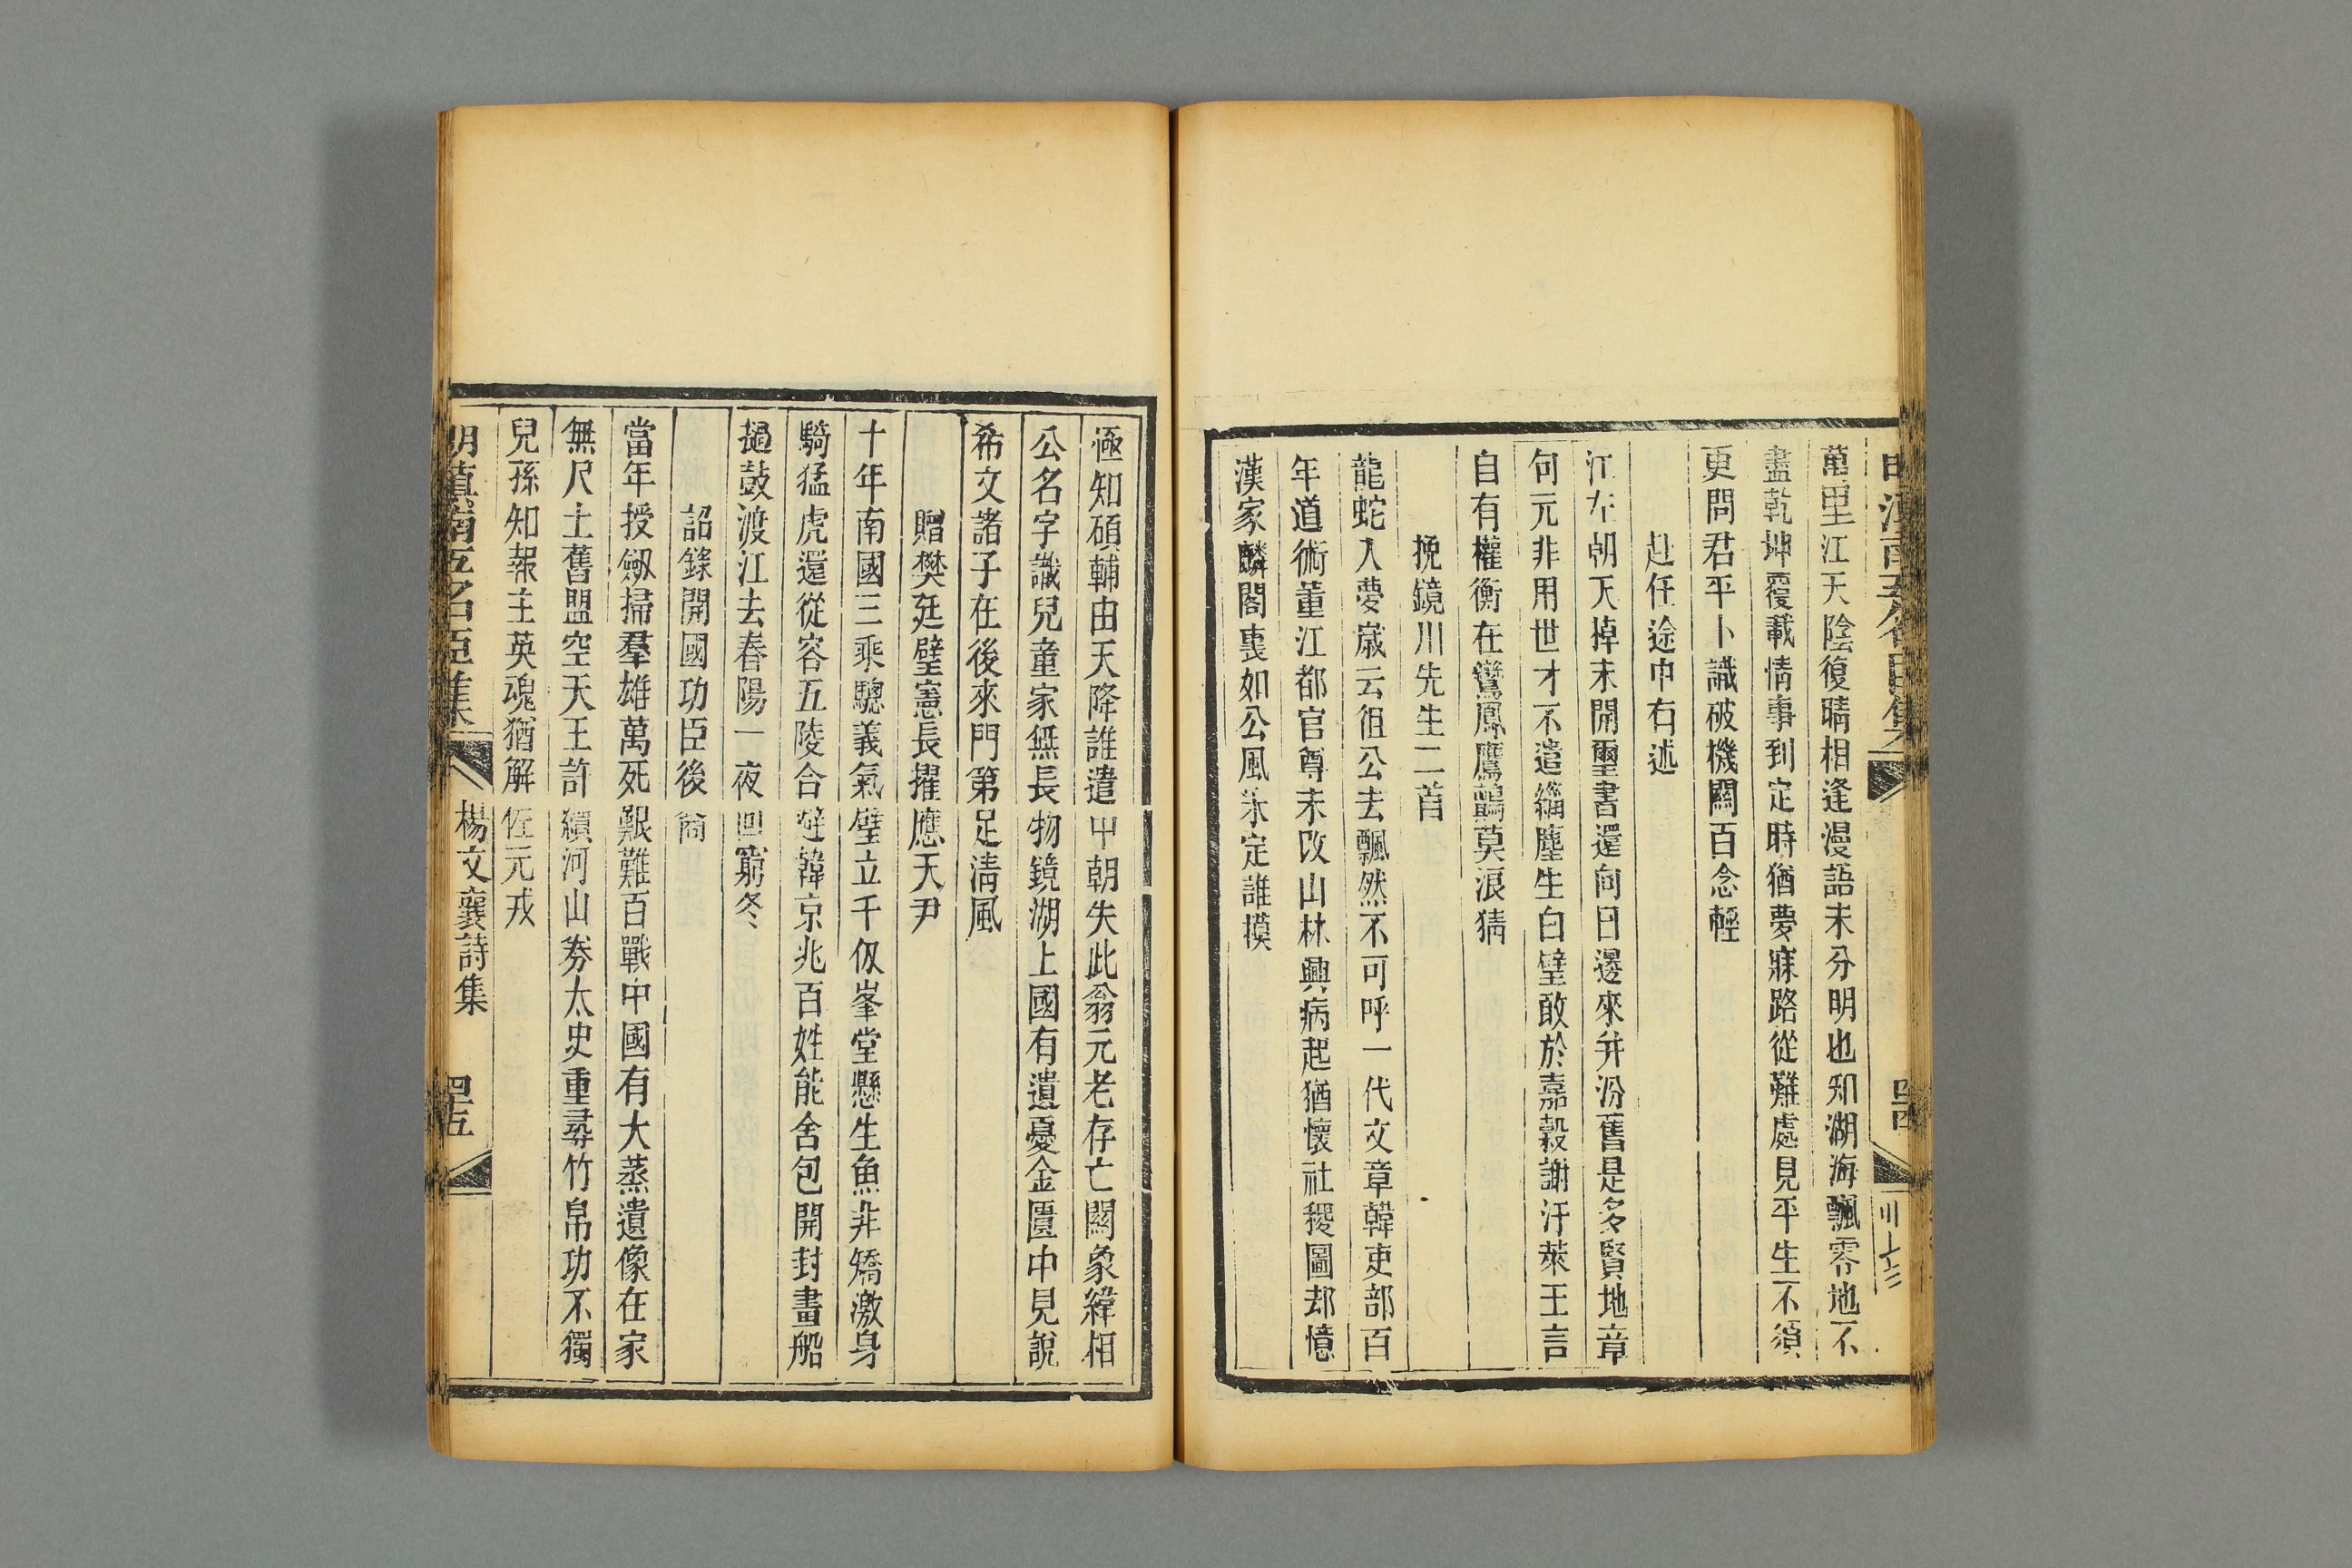 萬里江天陰復晴相逢漫語未分明也知湖海飄零地不
盡乾坤覆載情事到定時猶夢寐路從難處見平生不須
更問君平卜識破機關百念輕
赴任途中有述
江左朝天棹未開璽書還向日邊來并汾舊是多賢地章
句元非用世才不遣緇塵生白璧敢於嘉穀謝汙萊王言
自有權衡在鸞鳳鷹鸇莫浪猜
挽鏡川先生二首
龍蛇入夢歲云徂公去飄然不可呼一代文章韓吏部百
年道術董江都官尊未改山林興病起猶懷社稷圖却憶
漢家麟閣畫如公風采定誰摸
極知碩輔由天降誰遣中朝失此翁元老存亡關象緯相
公名字識兒童家無長物鏡湖上國有遺憂金匱中見說
希文諸子在後來門第足淸風
贈樊廷璧憲長擢應天尹
十年南國三乘驄義氣璧立千仭峯堂懸生魚非矯激身
騎猛虎還從容五陵合避韓京兆百姓能舍包開封畫船
撾鼓渡江去春陽一夜回窮冬
詔錄開國功臣後裔
當年授劔掃羣雄萬死艱難百戰中國有大蒸遺像在家
無尺土舊盟空天王許續河山劵太史重尋竹帛功不獨
兒孫知報主英魂猶解佐元戎
明滇南五名臣集 楊文襄詩集 四五